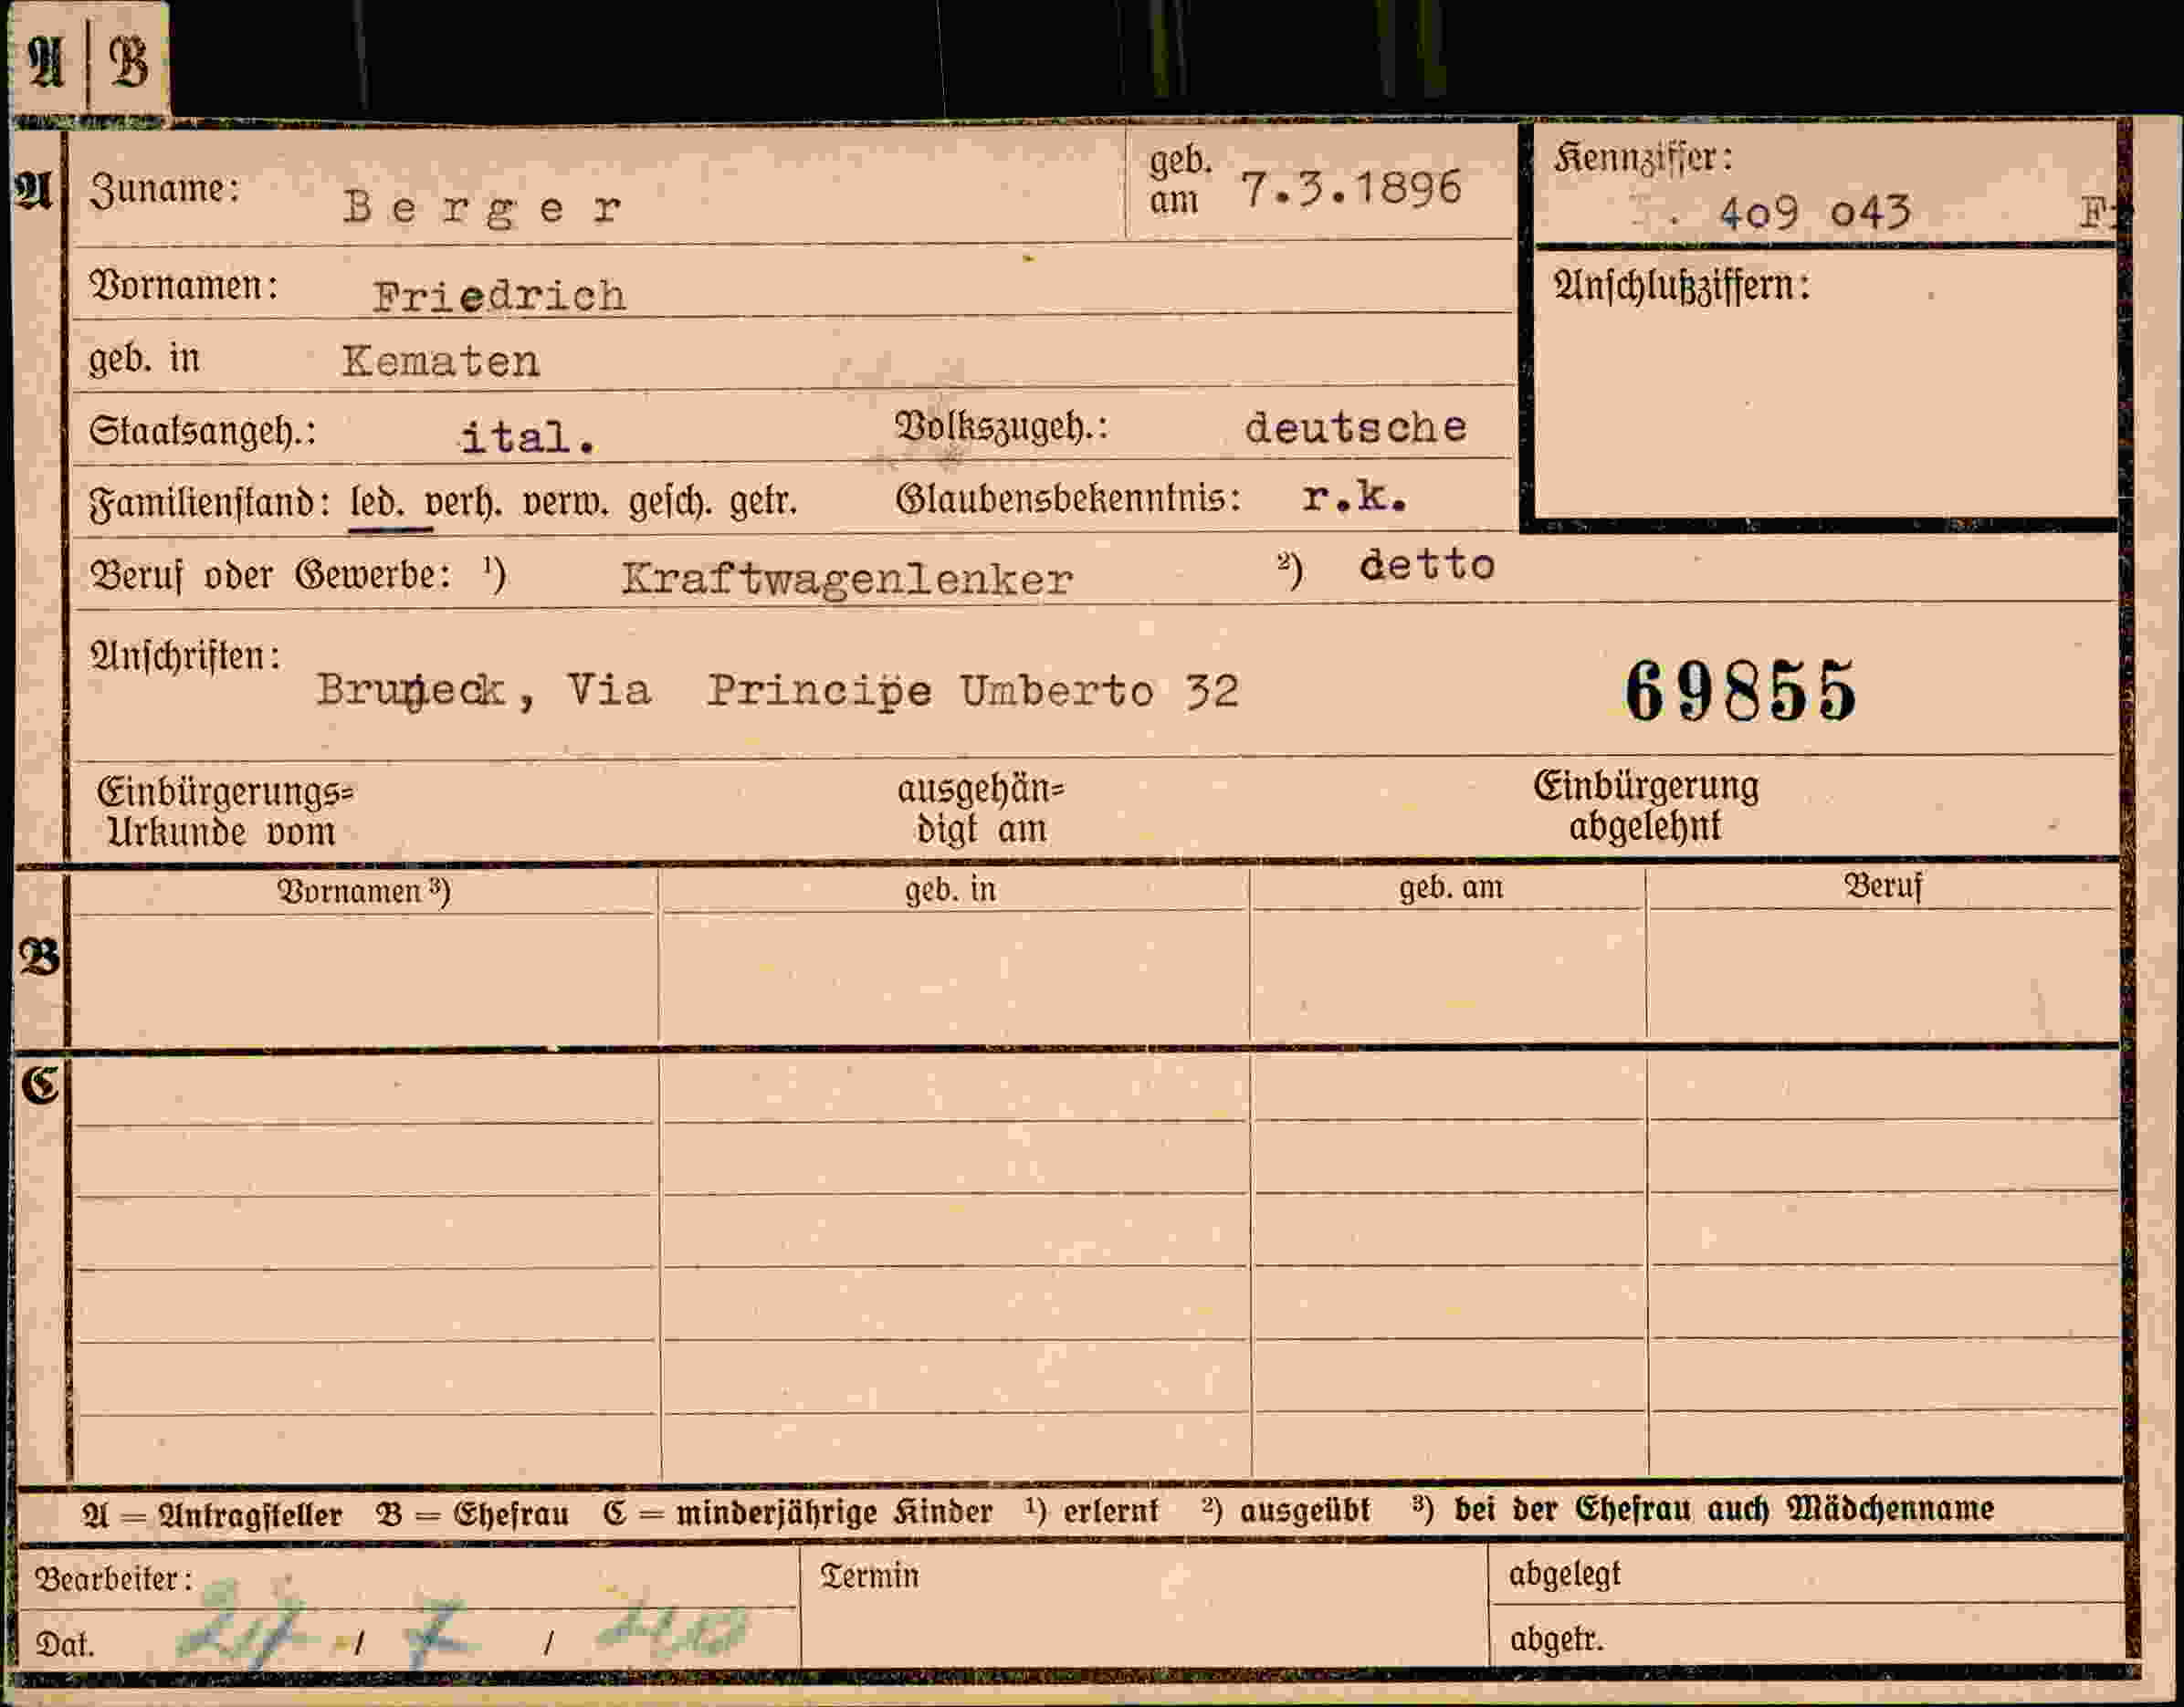 A | B
A
Zuname: Berger geb. am 7.3.1896
Kennziffer: 409 043
Vornamen: Friedrich
Anschlußziffern:
geb. in Kematen
Staatsangeh.: ital. Volkszugeh.: deutsche
Familienstand: led. verh. verw. gesch. getr. Glaubensbekenntnis: r.k.
Beruf oder Gewerbe: ¹) Kraftwagenlenker ²) detto
Anschriften:
Bruneck, Via Principe Umberto 32 69855
Einbürgerungs= ausgehän= Einbürgerung
Urkunde vom digt am abgelehnt
Vornamen ³) geb. in geb. am Beruf
B
C
A = Antragsteller B = Ehefrau C = minderjährige Kinder ¹) erlernt ²) ausgeübt ³) bei der Ehefrau auch Mädchenname
Bearbeiter: Termin abgelegt
Dat. / 7 / 40 abgetr.